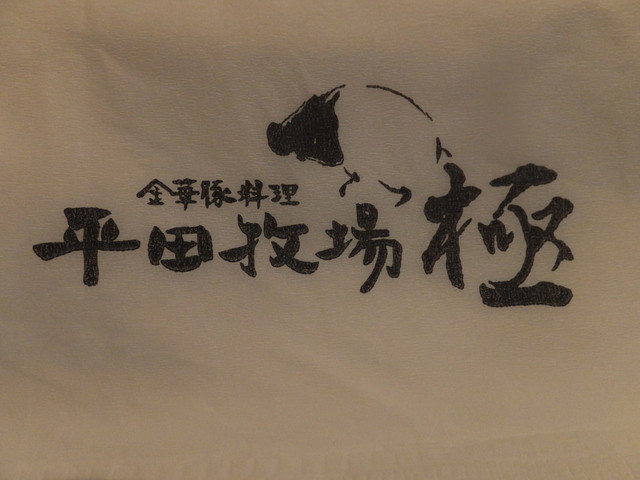 金華豚料理
平田牧場 極